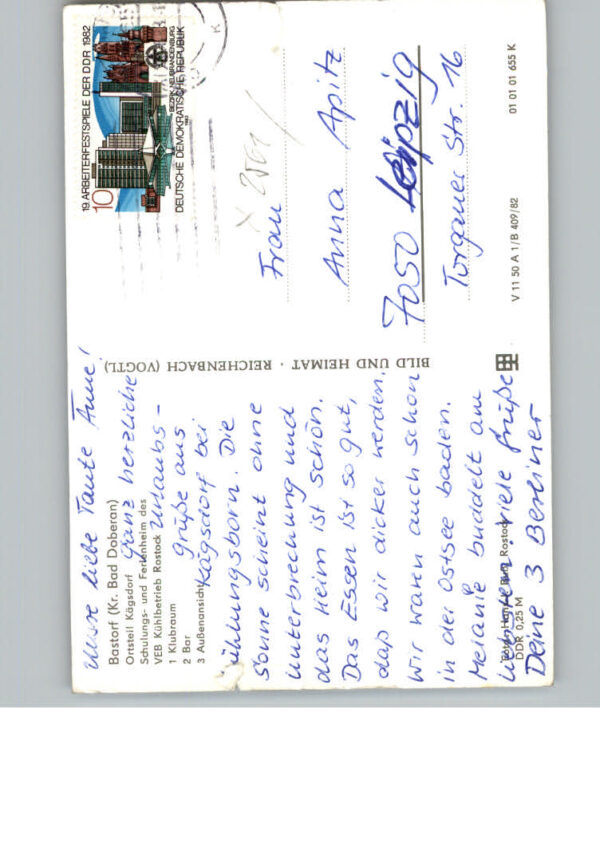 Unsre liebe Tante Änne!
Bastorf (Kr. Bad Doberan)
Ortsteil Kägsdorf
ganz herzliche
Schulungs- und Ferienheim des
VEB Kühlbetrieb Rostock
Urlaubs-
1 Klubraum
grüße aus
2 Bar
3 Außenansicht
Kägsdorf bei
Kühlungsborn. Die
Sonne scheint ohne
Unterbrechung und
das Heim ist schön.
Das Essen ist so gut,
daß wir dicker werden.
Wir warn auch schon
in der Ostsee baden.
Melanie buddelt am
viele Grüße
Rostock
DDR 0,25 M
Deine 3 Berliner
BILD UND HEIMAT · REICHENBACH (VOGTL)
19. ARBEITERFESTSPIELE DER DDR 1982
10
BEZIRK NEUBRANDENBURG
1982
DEUTSCHE DEMOKRATISCHE REPUBLIK
Frau
Anna Apitz
7050 Leipzig
Torgauer Str. 16
V 11 50 A 1/B 409/82
01 01 01 655 K